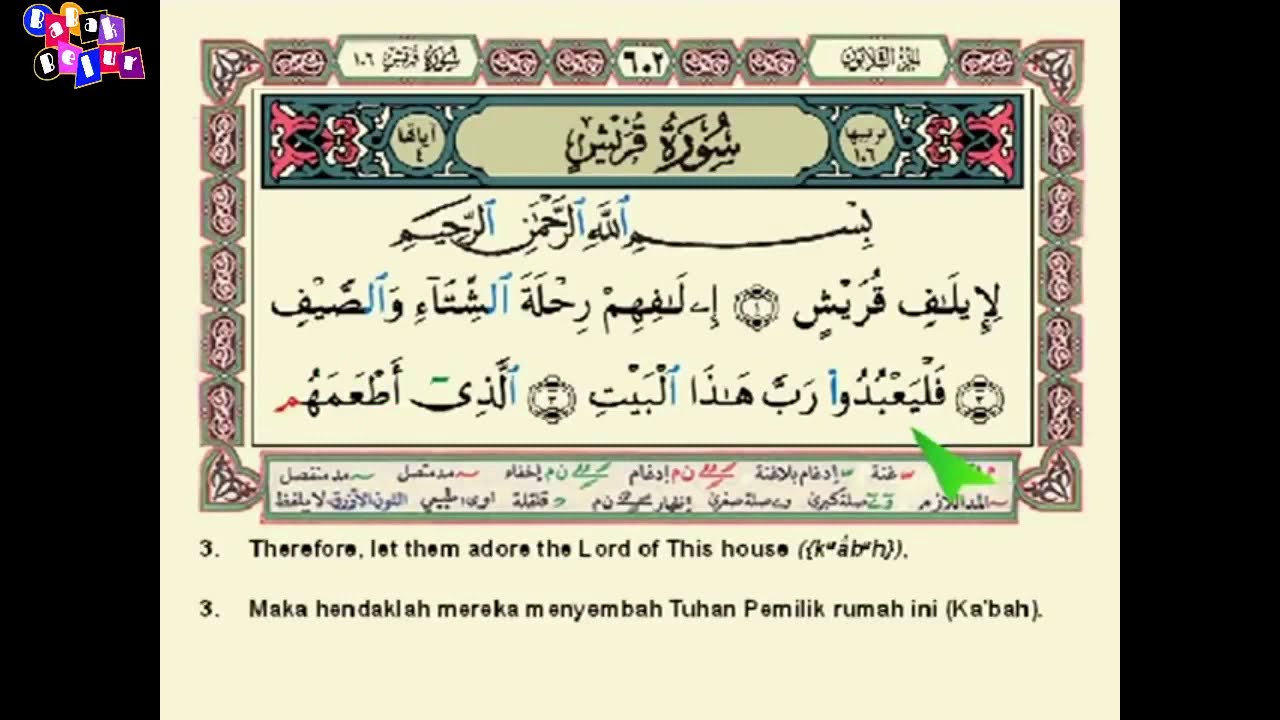 Babak
Belur
سورة قريش ١٠٦
٦٠٢
الجزء الثلاثون
ترتيبها ١٠٦
سُورَةُ قُرَيْشٍ
آياتها ٤
بِسْمِ ٱللَّهِ ٱلرَّحْمَٰنِ ٱلرَّحِيمِ
لِإِيلَٰفِ قُرَيْشٍ ١ إِۦلَٰفِهِمْ رِحْلَةَ ٱلشِّتَآءِ وَٱلصَّيْفِ
٢ فَلْيَعْبُدُوا۟ رَبَّ هَٰذَا ٱلْبَيْتِ ٣ ٱلَّذِىٓ أَطْعَمَهُم
غنة إدغام بلاغنة ن م إدغام ن م إخفاء مد متصل مد منفصل
المد اللازم صلة كبرى صلة صغرى إظهار ن م قلقلة اوى: طبيعي اللون الأزرق لا يلفظ
3. Therefore, let them adore the Lord of This house ({kaâbah}),
3. Maka hendaklah mereka menyembah Tuhan Pemilik rumah ini (Ka'bah).